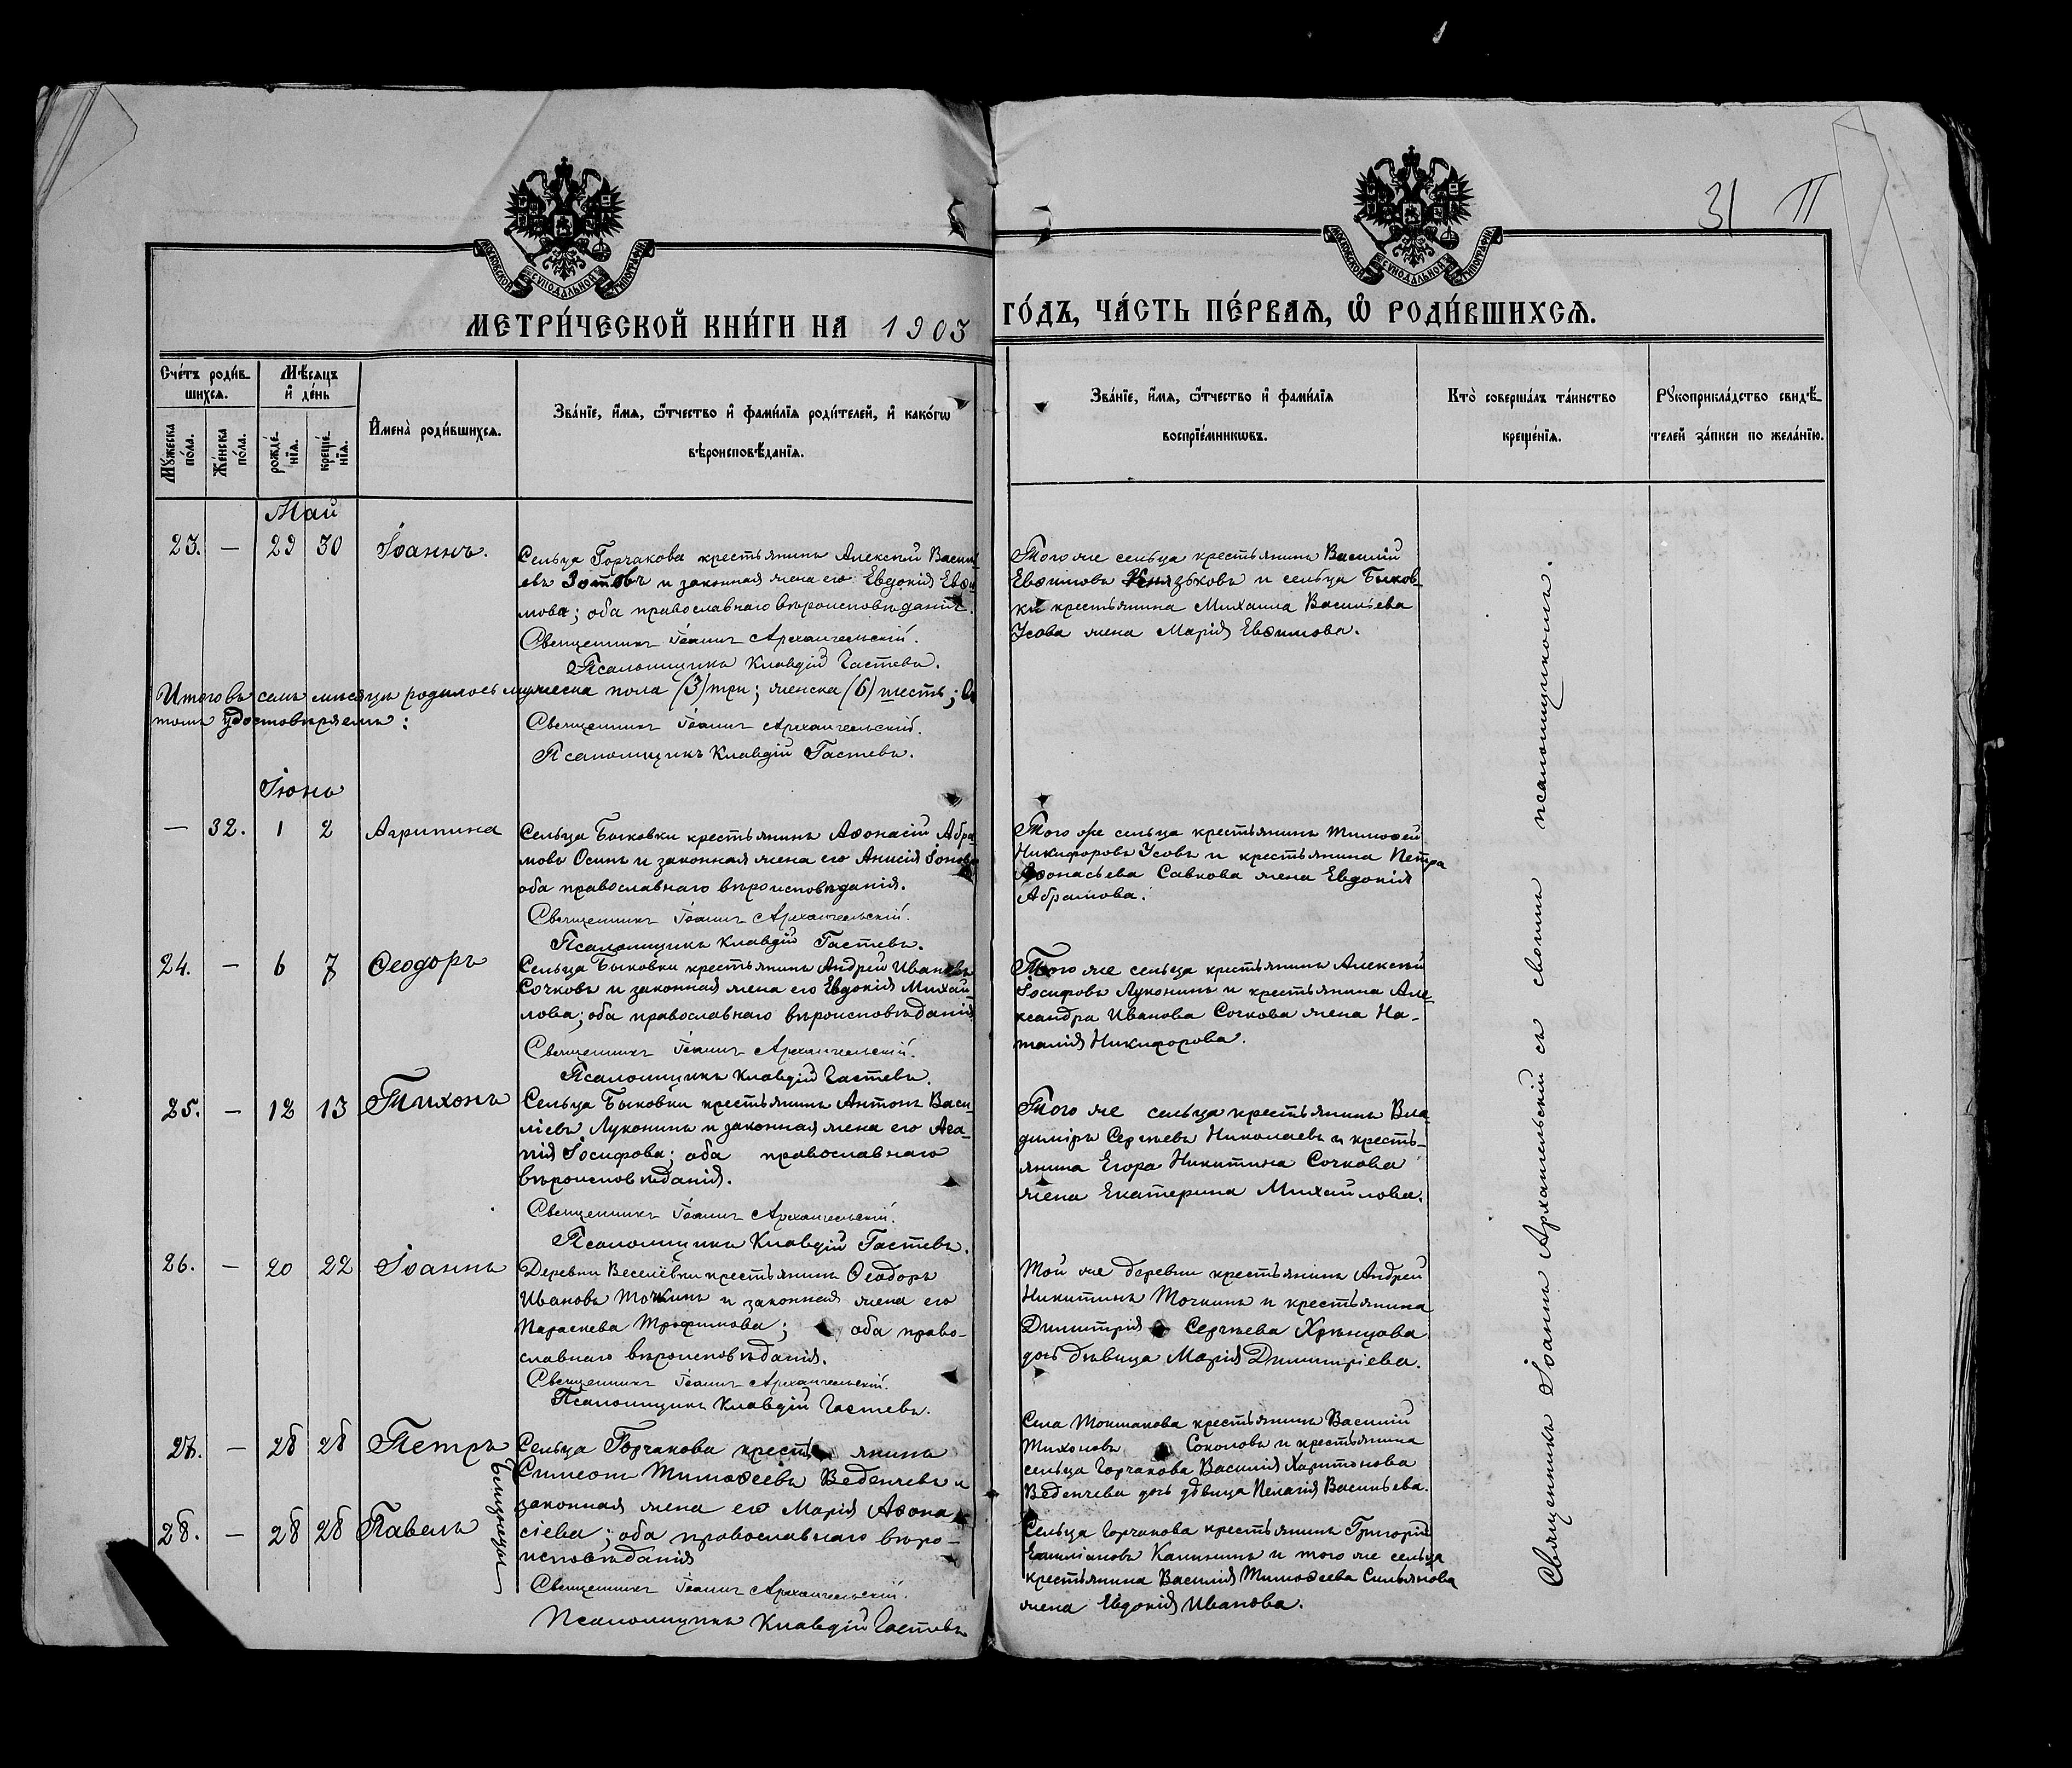 31 П
МОСКОВСКОЙ СѴНОДАЛЬНОЙ ТИПОГРАФІИ
МОСКОВСКОЙ СѴНОДАЛЬНОЙ ТИПОГРАФІИ
МЕТРИ́ЧЕСКОЙ КНИ́ГИ НА 1903 ГО́ДЪ, ЧА́СТЬ ПЕ́РВАѦ, Ѡ҆ РОДИ́ВШИХСѦ.
Сче́тъ роди́в-
шихсѧ.
Мꙋ́жеска по́ла.
Же́нска по́ла.
Мѣ́сѧцъ
и҆ де́нь
рожде́-
нїѧ.
креще́-
нїѧ.
И҆мена̀ роди́вшихсѧ.
Зва́нїе, и҆́мѧ, ѻ҆́тчество и҆ фами́лїѧ роди́телей, и҆ како́гѡ
вѣроисповѣ́данїѧ.
Зва́нїе, и҆́мѧ, ѻ҆́тчество и҆ фами́лїѧ
воспрїе́мникѡвъ.
Кто̀ соверша́лъ та́инство
креще́нїѧ.
Рꙋкоприкла́дство свидѣ́-
телей за́писи по жела́нїю.
Май
23. — 29 30 Іоаннъ.
Сельца Горчакова крестьянинъ Алексѣй Василь
евъ Зотовъ и законная жена его Евдокія Евѳи
мова; оба православнаго вѣроисповѣданія.
Священникъ Іоаннъ Архангельскій.
Псаломщикъ Клавдій Гастевъ.
Того же сельца крестьянинъ Василій
Евѳимовъ Князьковъ и сельца Быков-
ки крестьянина Михаила Васильева
Усова жена Марія Евѳимова.
Итого въ семъ мѣсяцѣ родилось мужеска пола (3) три; женска (6) шесть; въ
томъ удостовѣряемъ:
Священникъ Іоаннъ Архангельскій.
Псаломщикъ Клавдій Гастевъ.
Іюнь
— 32. 1 2 Агрипина
Сельца Быковки крестьянинъ Аѳонасій Абра
мовъ Осинъ и законная жена его Анисія Іонова
оба православнаго вѣроисповѣданія.
Священникъ Іоаннъ Архангельскій.
Псаломщикъ Клавдій Гастевъ.
Того же сельца крестьянинъ Тимоѳей
Никифоровъ Усовъ и крестьянина Петра
Аѳонасьева Савкова жена Евдокія
Абрамова.
24. — 6 7 Ѳеодоръ
Сельца Быковки крестьянинъ Андрей Ивановъ
Сочковъ и законная жена его Евдокія Михай-
лова; оба православнаго вѣроисповѣданія.
Священникъ Іоаннъ Архангельскій.
Псаломщикъ Клавдій Гастевъ.
Того же сельца крестьянинъ Алексѣй
Іосифовъ Луконинъ и крестьянина Але-
ксандра Иванова Сочкова жена На-
талія Никифорова.
25. — 12 13 Тихонъ
Сельца Быковки крестьянинъ Антонъ Васи-
ліевъ Луконинъ и законная жена его Ага-
пія Іосифова; оба православнаго
вѣроисповѣданія.
Священникъ Іоаннъ Архангельскій.
Псаломщикъ Клавдій Гастевъ.
Того же сельца крестьянинъ Вла-
диміръ Сергѣевъ Николаевъ и кресть-
янина Егора Никитина Сочкова
жена Екатерина Михайлова.
26. — 20 22 Іоаннъ
Деревни Веселёвки крестьянинъ Ѳеодоръ
Ивановъ Точкинъ и законная жена его
Параскева Трофимова; оба право-
славнаго вѣроисповѣданія.
Священникъ Іоаннъ Архангельскій.
Псаломщикъ Клавдій Гастевъ.
Той же деревни крестьянинъ Андрей
Никитинъ Точкинъ и крестьянина
Димитрія Сергѣева Хрѣнцова
дочь дѣвица Марія Димитріева.
27. — 28 28 Петръ
28. — 28 28 Павелъ
Близнецы
Сельца Горчакова крестьянинъ
Симеонъ Тимоѳеевъ Веденчевъ и
законная жена его Марія Аѳона
сіева; оба православнаго вѣро-
исповѣданія
Священникъ Іоаннъ Архангельскій.
Псаломщикъ Клавдій Гастевъ
Села Токмакова крестьянинъ Василій
Тихоновъ Соколовъ и крестьянина
сельца Горчакова Василія Харитонова
Веденчева дочь дѣвица Пелагія Васильева.
Сельца Горчакова крестьянинъ Григорій
Емиліановъ Калининъ и того же сельца
крестьянина Василія Тимоѳеева Сильянова
жена Евдокія Иванова.
Священникъ Іоаннъ Архангельскій съ своимъ псаломщикомъ.